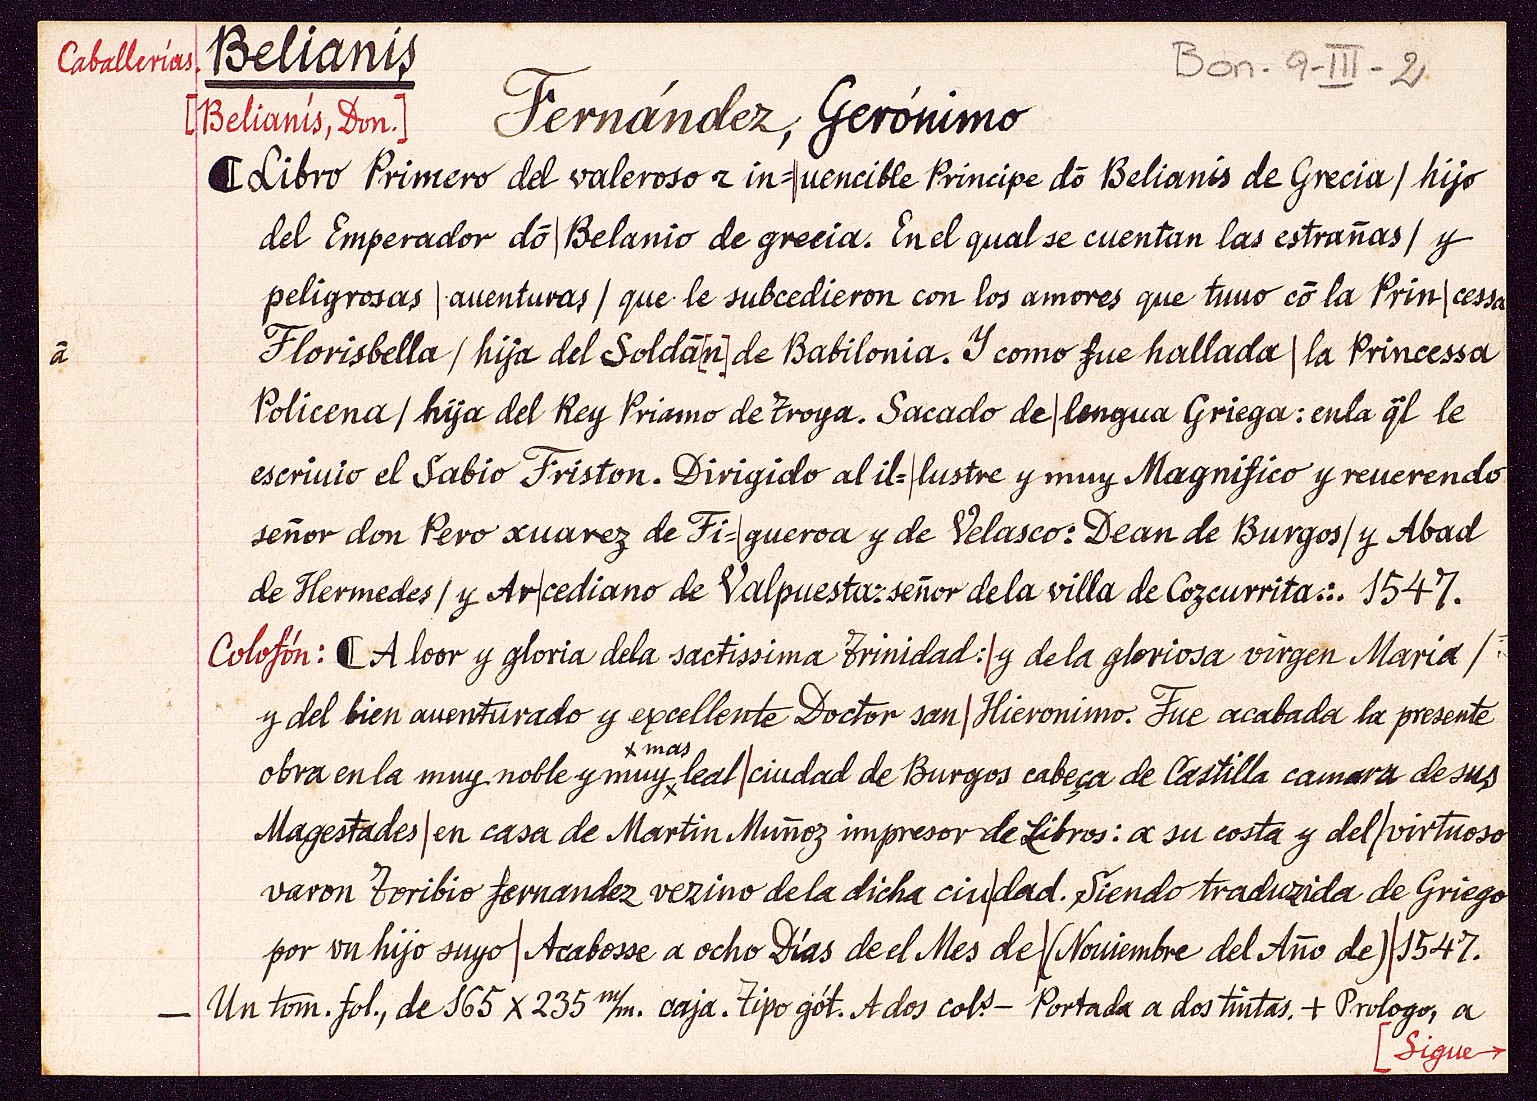 Caballerías. Belianis Bon. 9-III-2
[Belianís, Don.] Fernández, Gerónimo
¶ Libro Primero del valeroso ⁊ in=|uencible Principe dō Belianis de Grecia / hijo
del Emperador dō | Belanio de grecia. En el qual se cuentan las estrañas / y
peligrosas | auenturas / que le subcedieron con los amores que tuuo cō la Prin|cessa
ā Florisbella / hija del Soldā[n] de Babilonia. Y como fue hallada | la Princessa
Policena / hija del Rey Priamo de Troya. Sacado de | lengua Griega: enla q̃l le
escriuio el Sabio Friston. Dirigido al il=|lustre y muy Magnifico y reuerendo
señor don Pero xuarez de Fi=|gueroa y de Velasco: Dean de Burgos / y Abad
de Hermedes / y Ar|cediano de Valpuesta: señor dela villa de Cozcurrita.:. 1547.
Colofón: ¶ A loor y gloria dela sactissima Trinidad: | y dela gloriosa virgen Maria /
y del bien auenturado y excellente Doctor san | Hieronimo. Fue acabada la presente
x mas
obra en la muy noble y muy x leal | ciudad de Burgos cabeça de Castilla camara de sus
Magestades | en casa de Martin Muñoz impresor de Libros: a su costa y del | virtuoso
varon Toribio fernandez vezino dela dicha ciu|dad. Siendo traduzida de Griego
por vn hijo suyo | Acabosse a ocho Días de el Mes de | (Nouiembre del Año de) | 1547.
— Un tom. fol., de 165 x 235 m/m. caja. Tipo gót. A dos cols. – Portada a dos tintas. + Prologo, a
[Sigue →